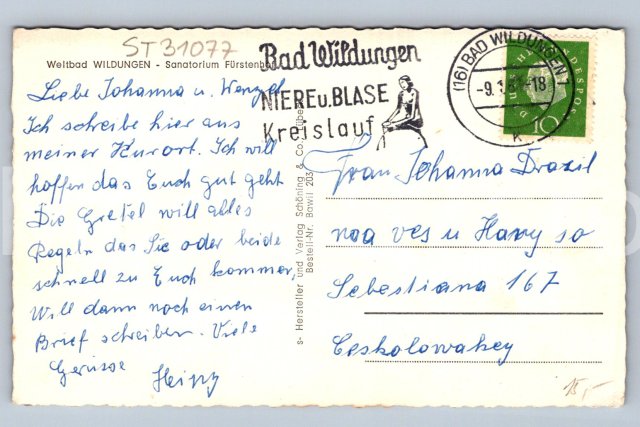 ST31077
Weltbad WILDUNGEN - Sanatorium Fürstenhof
Bad Wildungen
NIERE u. BLASE
Kreislauf
(16) BAD WILDUNGEN
-9.1
-18
k
DEUTSCHE BUNDESPOST
10
Liebe Johanna u. Wenzel
Ich schreibe hier aus
meiner Kurort. Ich will
hoffen das Euch gut geht
Die Gretel will alles
Regeln das Sie oder beide
schnell zu Euch kommen,
Will dann noch einen
Brief schreiben. Viele
Gerüsse
Heinz
s- Hersteller und Verlag Schöning & Co.
Bestell-Nr. Bawil 203
Frau Johanna Drazil
noa ves u Hany so
Sebestiana 167
Ceskolowakey
15,-